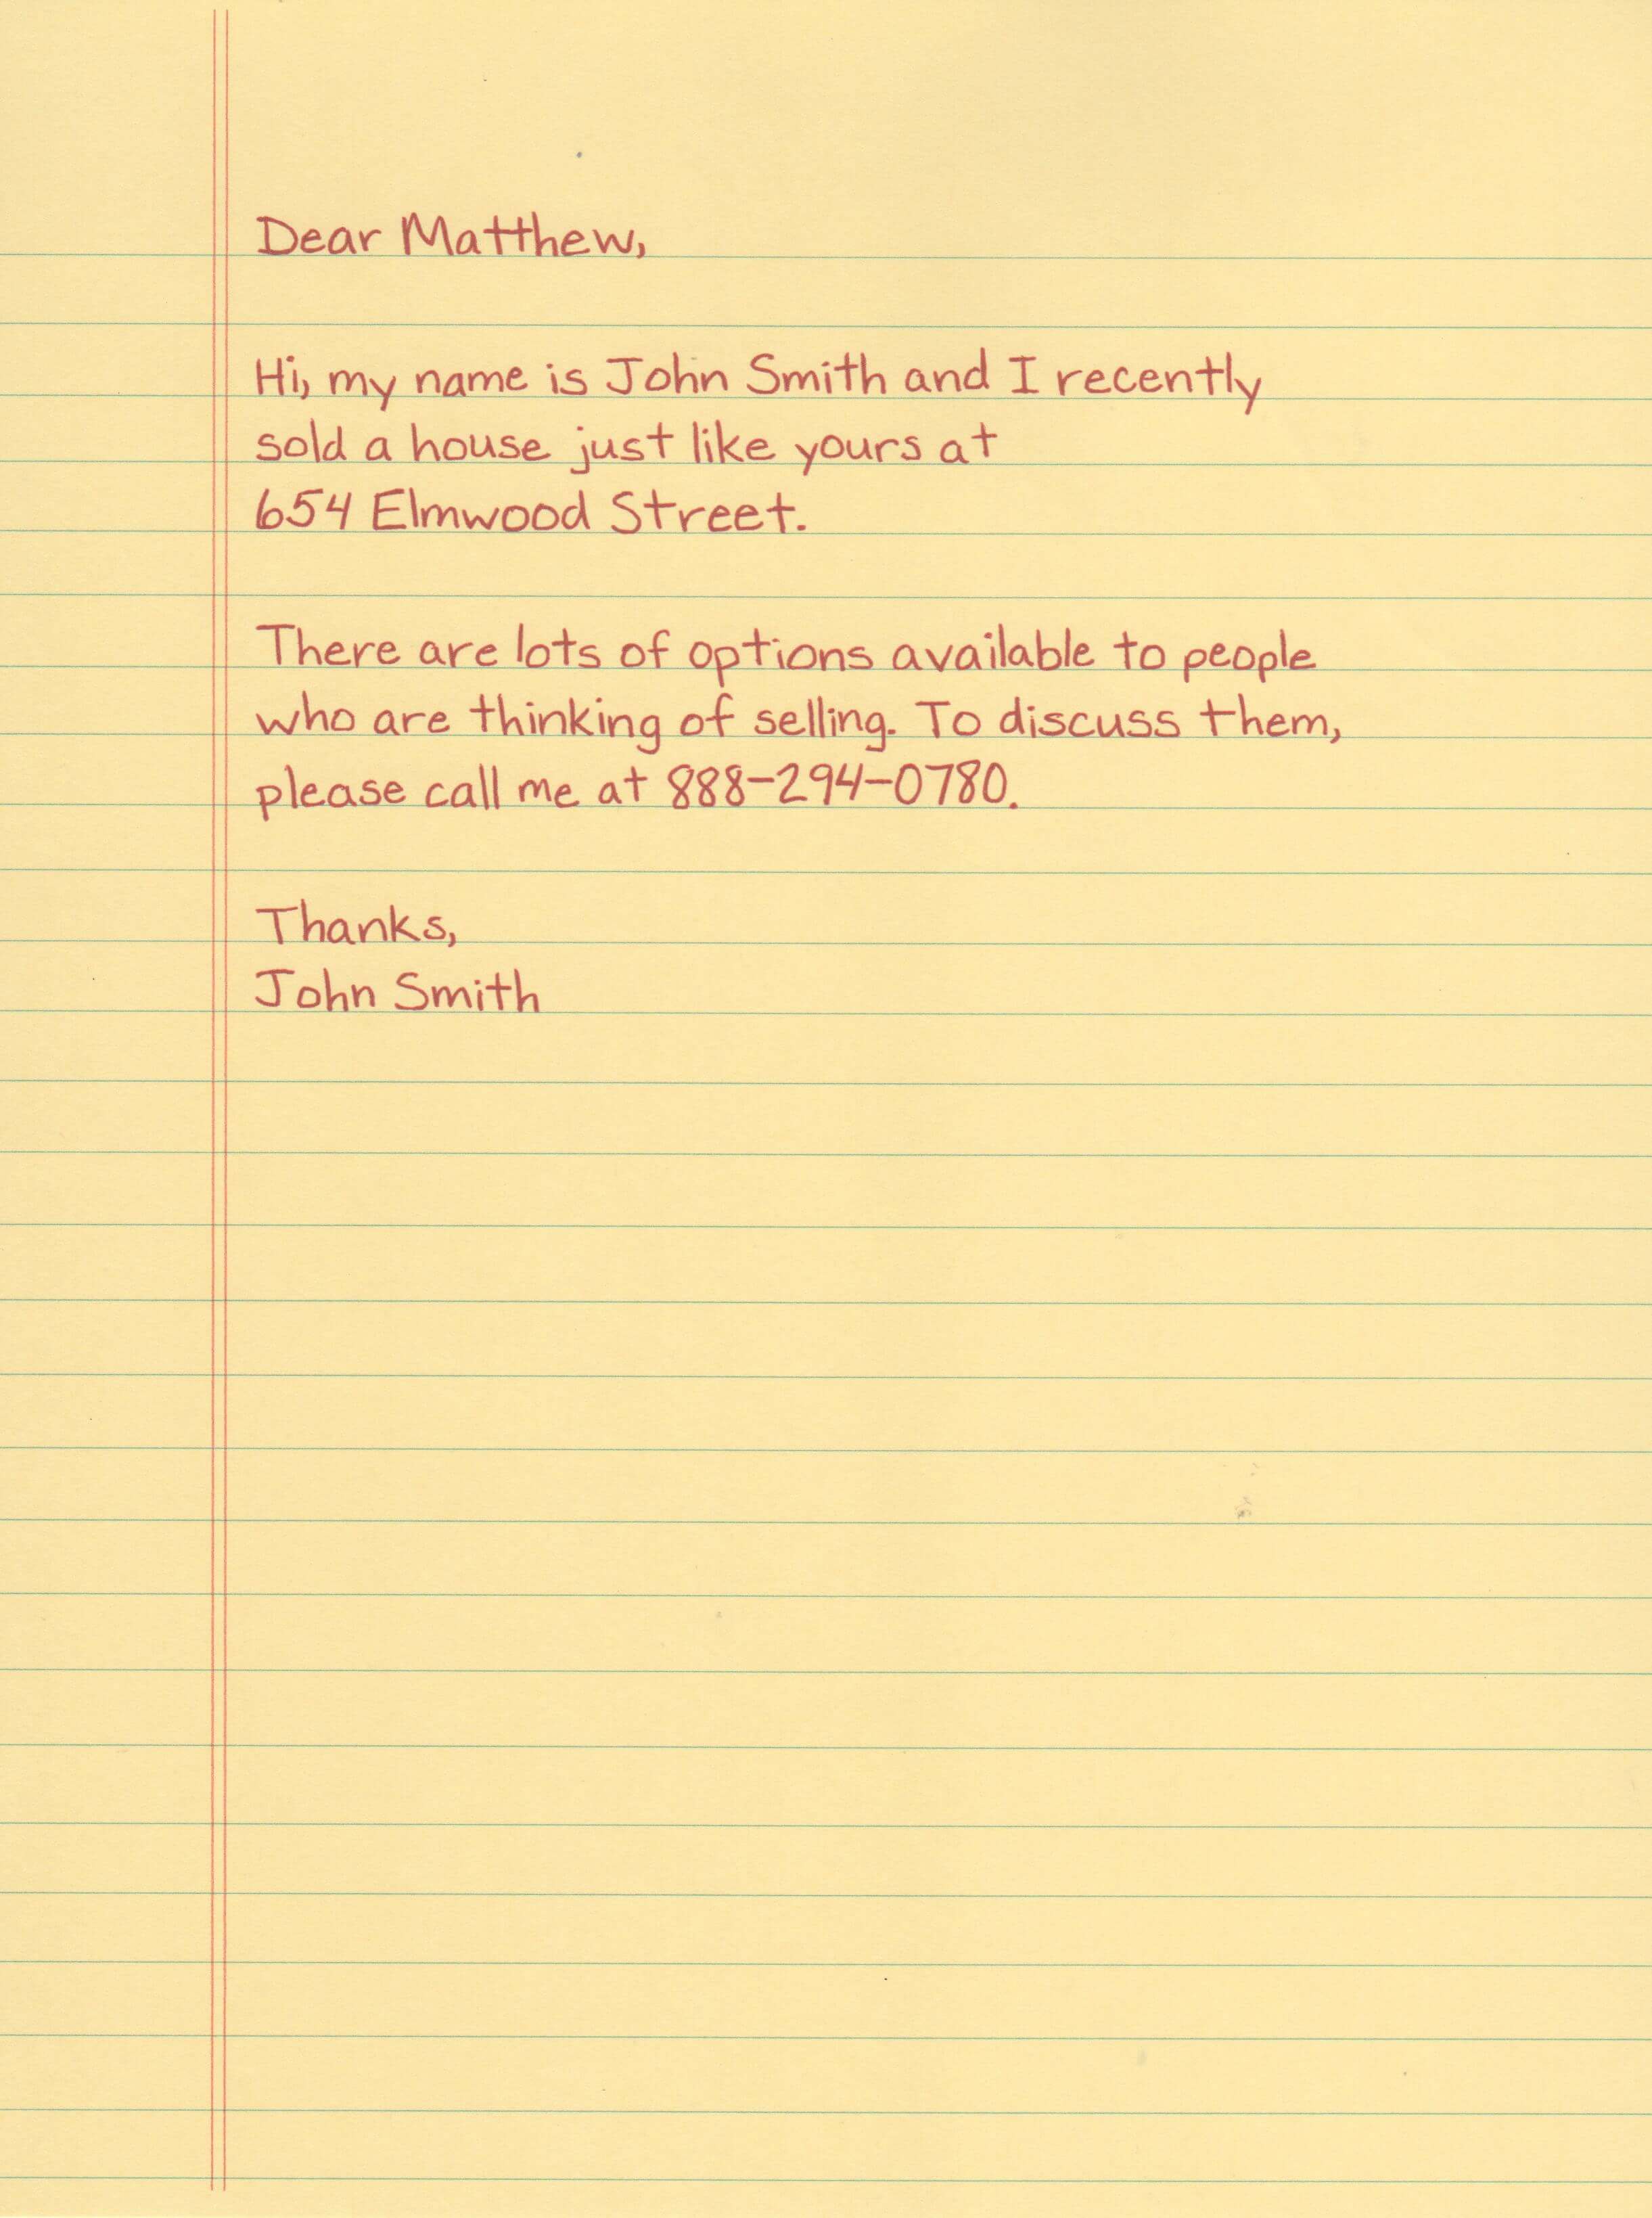 Dear Matthew,
Hi, my name is John Smith and I recently
sold a house just like yours at
654 Elmwood Street.
There are lots of options available to people
who are thinking of selling. To discuss them,
please call me at 888-294-0780.
Thanks,
John Smith